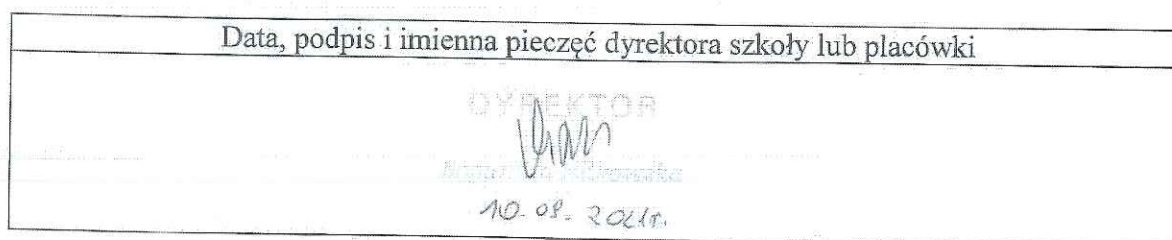 Data, podpis i imienna pieczęć dyrektora szkoły lub placówki
DYREKTOR
10.09.2021r.